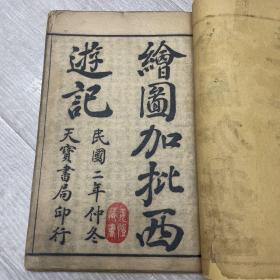 繪圖加批西
遊記
民國二年仲冬
天寶書局印行